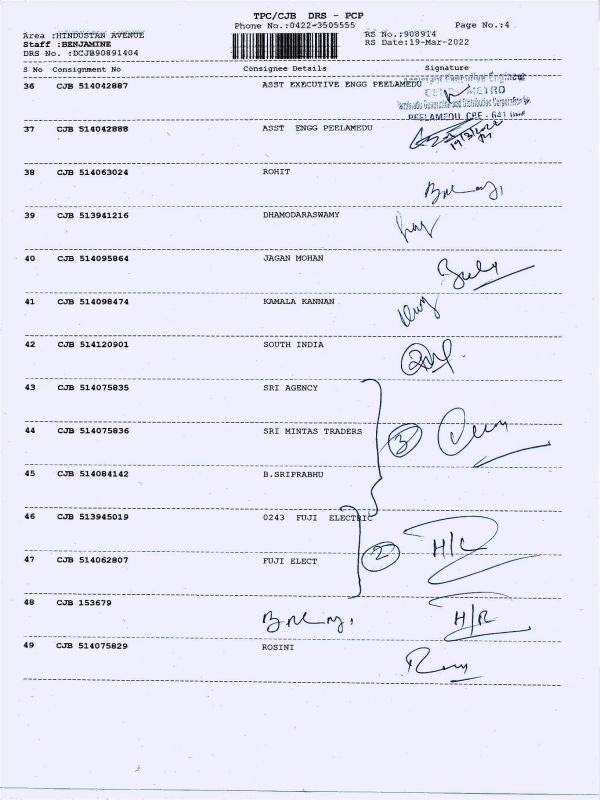 TPC/CJB DRS - PCP
Phone No.:0422-3505555 Page No.:4
Area :HINDUSTAN AVENUE RS No.:908914
Staff :BENJAMINE RS Date:19-Mar-2022
DRS No. :DCJB90891404
S No Consignment No Consignee Details Signature
36 CJB 514042887 ASST EXECUTIVE ENGG PEELAMEDU Assistant Executive Engineer
METRO
Tamilnadu Generation and Distribution Corporation
PEELAMEDU, CBE - 641
37 CJB 514042888 ASST ENGG PEELAMEDU
19/3/2022
38 CJB 514063024 ROHIT
39 CJB 513941216 DHAMODARASWAMY
40 CJB 514095864 JAGAN MOHAN
41 CJB 514098474 KAMALA KANNAN
42 CJB 514120901 SOUTH INDIA
43 CJB 514075835 SRI AGENCY
44 CJB 514075836 SRI MINTAS TRADERS 3
45 CJB 514084142 B.SRIPRABHU
46 CJB 513945019 0243 FUJI ELECTRIC
47 CJB 514062807 FUJI ELECT 2 H/C
48 CJB 153679 H/R
49 CJB 514075829 ROSINI